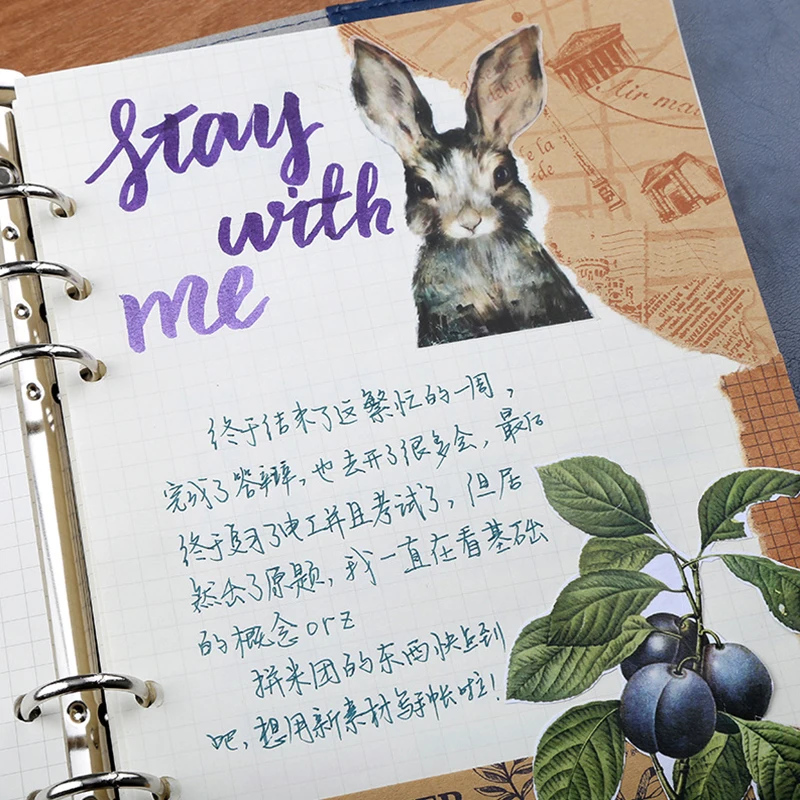 stay
with
me
Air mail
de la
终于结束了这繁忙的一周，
完成了答辩，也去开了很多会，最后
终于复习了电工并且考试了，但居
然出了原题，我一直在看基础
的概念orz
拼米团的东西快点到
吧，想用新素材写手帐啦！